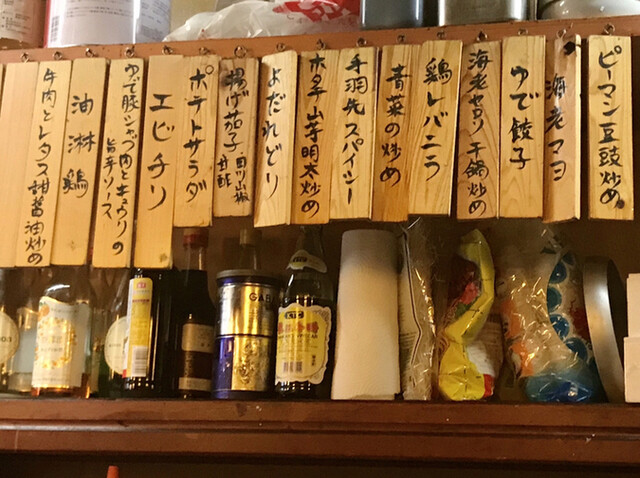 ピーマン豆豉炒め
海老マヨ
ゆで餃子
海老セロリ
干鍋炒め
鶏レバニラ
青菜の炒め
手羽先スパイシー
ホタテ山芋明太炒め
よだれどり
揚げ茄子
四川山椒
甘酢
ポテトサラダ
エビチリ
ゆで豚シャブ肉とキュウリの
旨辛ソース
油淋鶏
牛肉とレタス甜醤油炒め